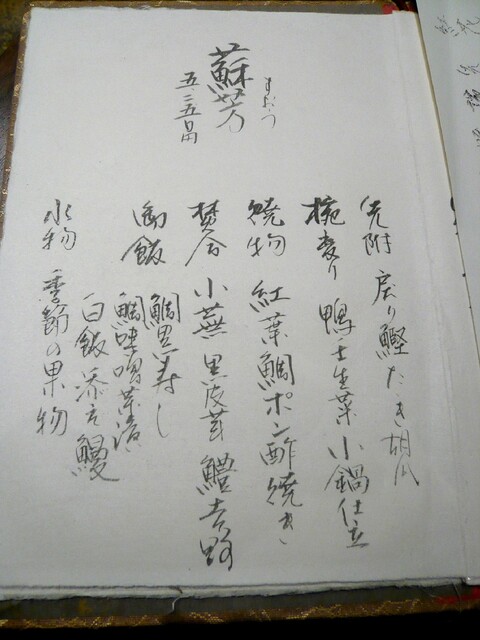 蘇芳
すおう
五、二五〇円
先附 戻り鰹たゝき 胡瓜
椀変り 鴨 壬生菜 小鍋仕立
焼物 紅葉鯛ポン酢焼き
焚合 小蕪 黒皮茸 鱧吉野
御飯 鯛黒寿し
鯛味噌茶漬
白飯添え鰻
水物 季節の果物